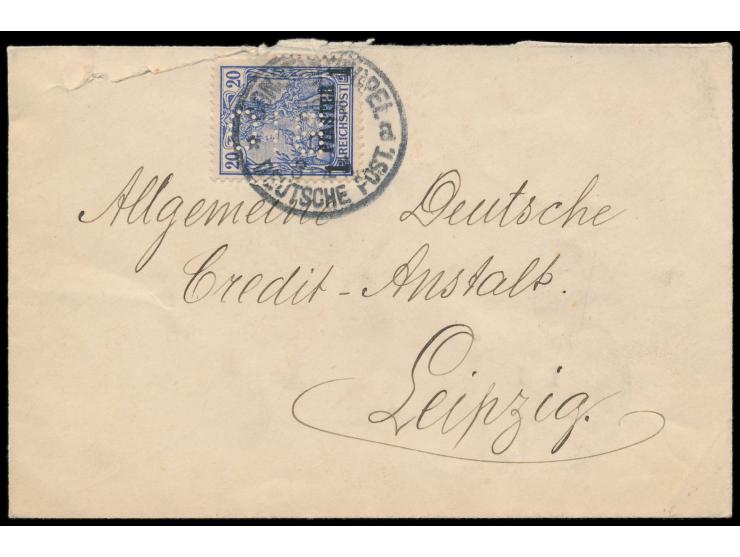 20 20
1 PIASTER 1
REICHSPOST
DEUTSCHE POST.
Allgemeine Deutsche
Credit-Anstalt.
Leipzig.